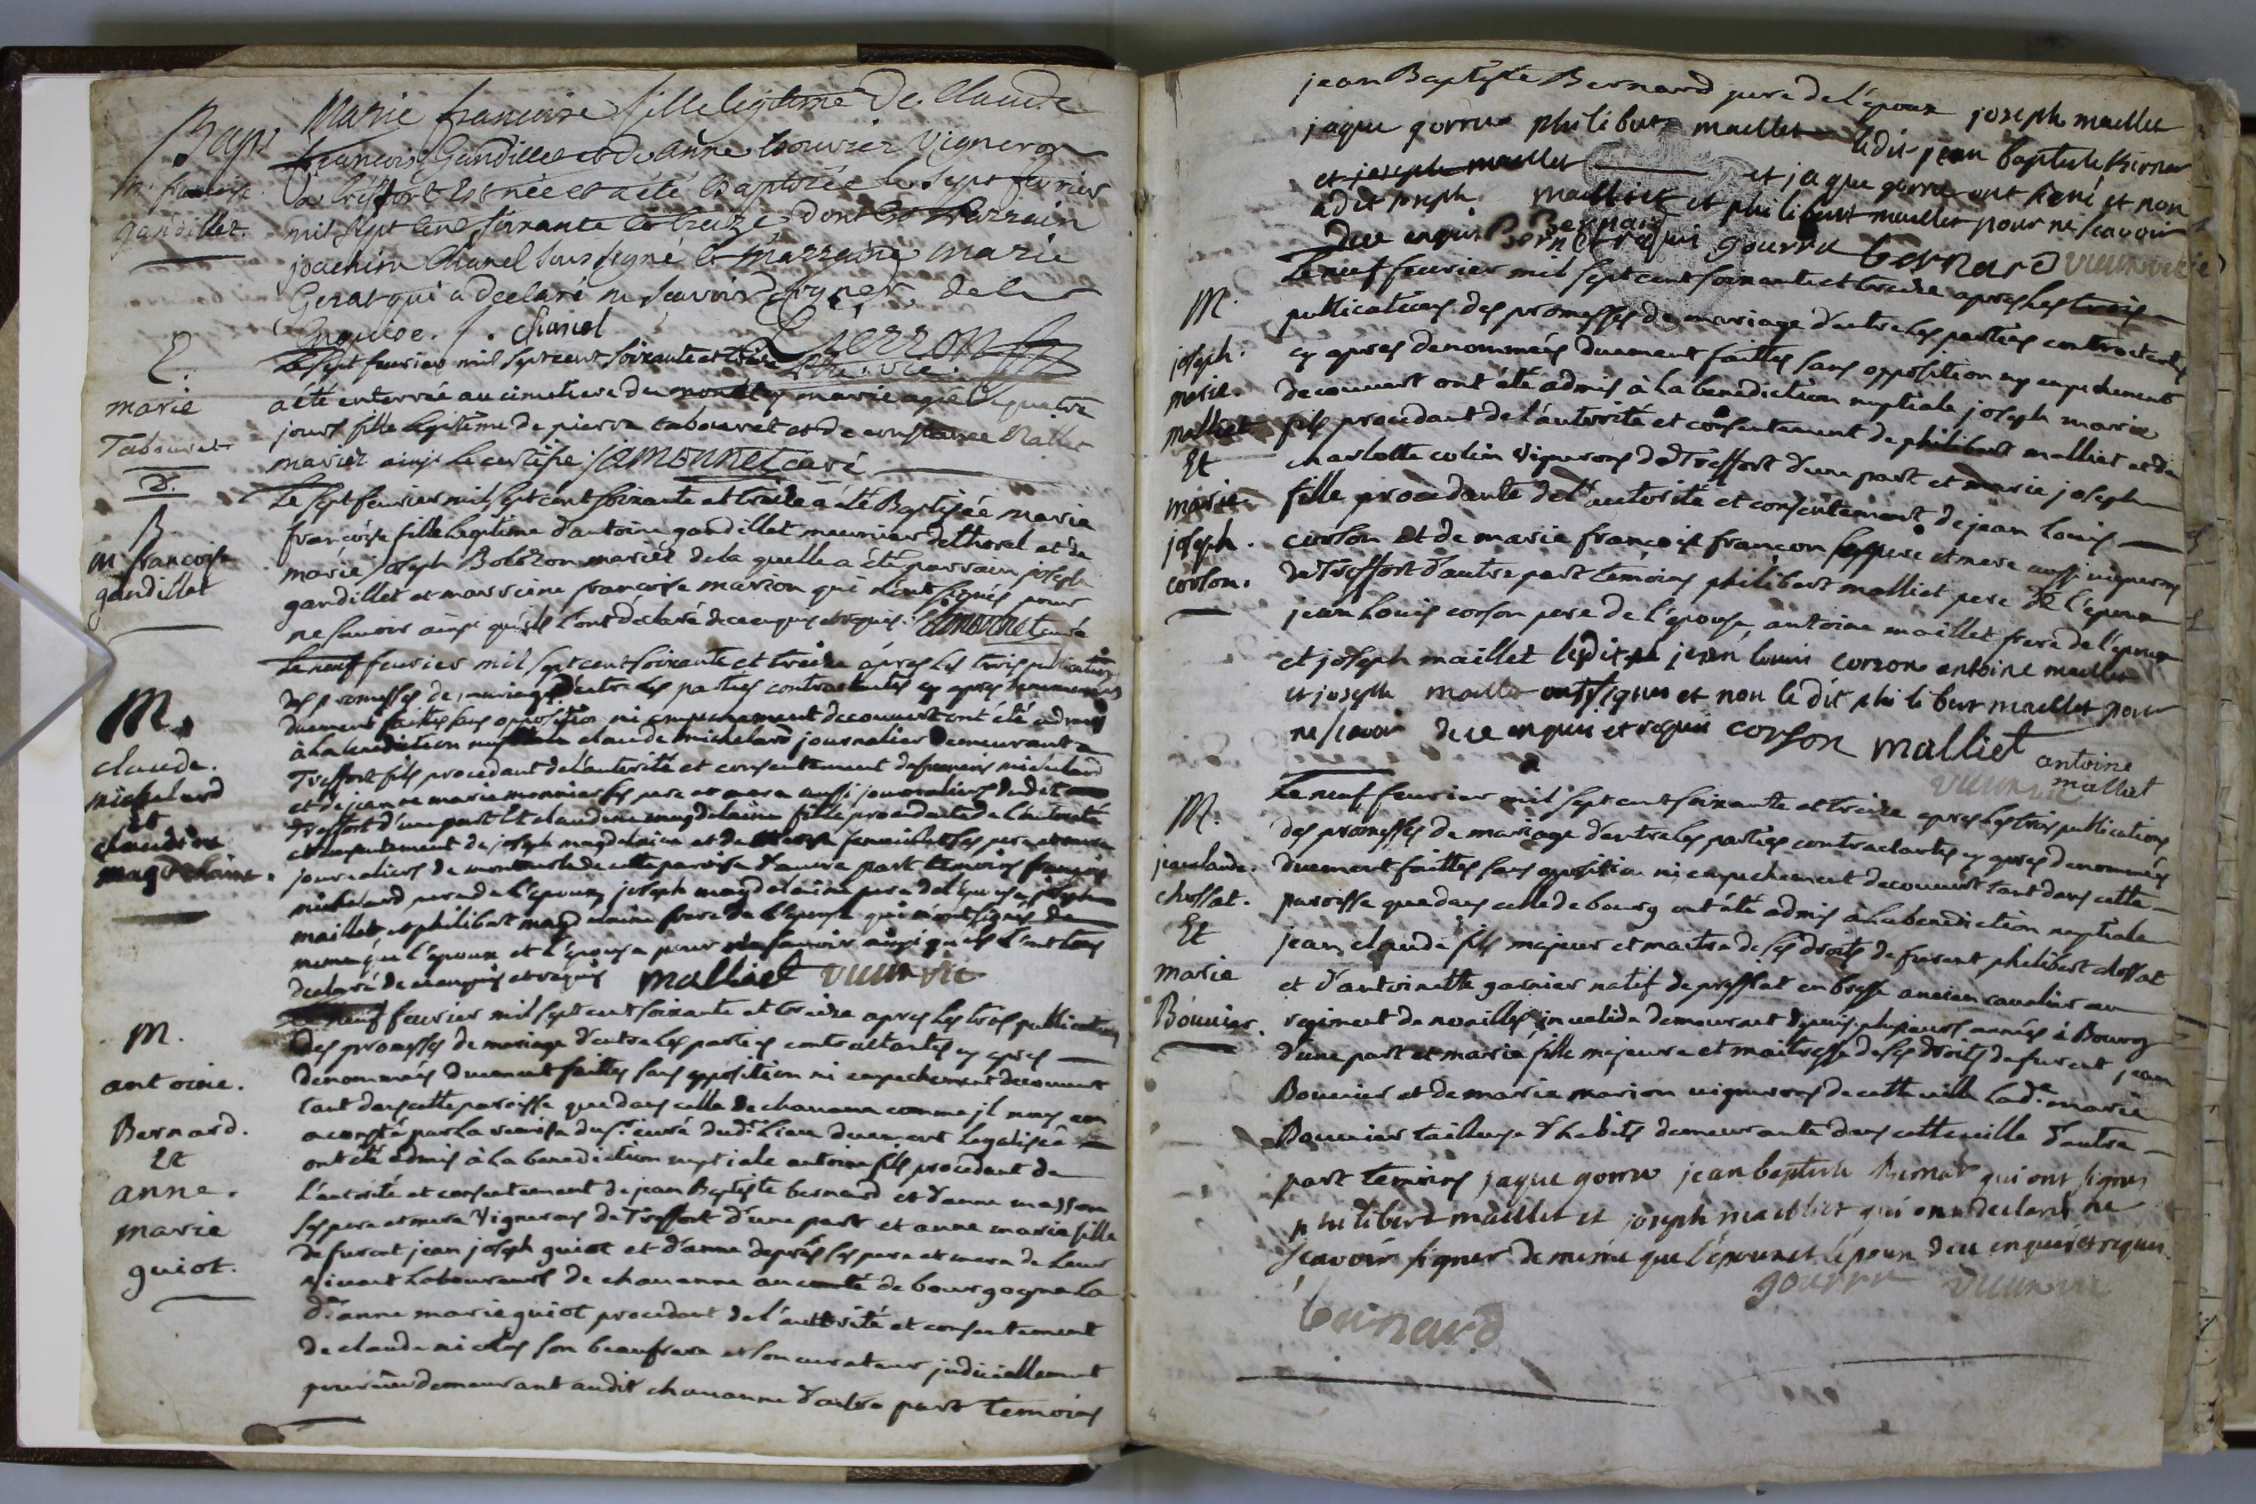 Bapt
m. francoise
gandillet.
Marie francoise fille legitime De Claude
francois Gandillet et de Anne bouvier Vigneron
a treffort Est née et a été Baptizée le Sept fevrier
mil Sept Cent soixante et treize, dont Est Parrain
joachim Chanel sous signé et Marraine Marie
qui a declaré ne scavoir signer de ce
Enquise. Chanel
E.
marie
Tabouret
d.
Le sept feurier mil sept cent soixante et treize
a été enterrée au cimetiere du marie agée quatre
jours fille legitime de pierre tabouret et de
mariés ainsi le certifie jamonnet curé
B
m francoise
gandillet
Le sept feurier mil sept cent soixante et treize a été Baptisée marie
françoise fille legitime d'antoine gandillet meunier et de
marie joseph mariés de la quelle a été parrain joseph
gandillet et marraine francoise marion qui n'ont signés pour
ne savoir ainsi qu'ils l'ont declaré de ce enquis et requis. jamonnet curé
M.
claude.
michelard
et
claudine
magdelaine.
Le neuf feurier mil sept cent soixante et treize apres les trois publications
des promesses de mariage d'entre les parties contractantes cy apres denommées
duement faittes sans opposition ni empechement decouvert ont été admis
à la benediction nuptiale claude michelard journalier demeurant a
Treffort fils procedant de l'autorité et consentement de francois michelard
et de jeanne marie monnier ses pere et mere aussi journaliers dudit
Treffort d'une part Et claudine magdelaine fille procedante de l'autorité
et consentement de joseph magdelaine et de ses pere et mere
journaliers de de cette paroisse d'autre part temoins francois
michelard pere de l'epoux joseph magdelaine pere de l'epouse joseph
maillet et philibert magdelaine frere de l'epouse qui n'ont signés de
meme que l'epoux et l'epouse pour ne savoir ainsi qu'ils l'ont tous
declaré de ce enquis et requis malliet
M.
antoine.
Bernard.
Et
anne.
marie
guiot.
Le neuf feurier mil sept cent soixante et treize apres les trois publications
des promesses de mariage d'entre les parties contractantes cy apres
denommées duement faittes sans opposition ni empechement decouvert
tant dans cette paroisse que dans celle de chauanne comme jl nous en
a consté par la remise du sr. curé dudt. lieu duement legalisée
ont été admis à la benediction nuptiale antoine fils procedant de
l'autorité et consentement de jean Baptiste bernard et d'anne masson
ses pere et mere Vignerons de Treffort d'une part et anne marie fille
de furent jean joseph guiot et d'anne ses pere et mere de leur
vivant laboureurs de chauanne au comté de bourgogne la
de. anne marie guiot procedant de l'autorité et consentement
de claude nicolas son beaufrere et son curateur judiciellement
pourvue demeurant audit chauanne d'autre part temoins
jean Baptiste Bernard pere de l'epoux joseph maillet
jaque gorru philibert maillet ledit jean baptiste bernar
et joseph maillet et jaque gorru ont signé et non
ledit joseph mailliet et philibert maillet pour ne scavoir
de ce enquis et requis gourru bernard
M.
joseph.
marie.
malliet
Et
marie.
joseph.
corson.
Le neuf feurier mil sept cent soixante et treize apres les trois
publications des promesses de mariage d'entre les parties contractantes
cy apres denommées duement faittes sans opposition ny empechement
decouvert ont été admis à la benediction nuptiale joseph marie
fils procedant de l'autorité et consentement de philibert malliet et de
charlotte colin Vignerons de Treffort d'une part et marie joseph
fille procedante de l'autorité et consentement de jean louis
corson et de marie françoise françon ses pere et mere aussi vignerons
de Treffort d'autre part temoins philibert malliet pere de l'epoux
jean louis corson pere de l'epouse antoine maillet frere de l'epoux
et joseph maillet ledit jean louis corson antoine maillet
et joseph maillet ont signes et non le dit philibert maillet pour
ne scavoir de ce enquis et requis corson malliet
antoine
malliet
M.
jean claude.
chossat.
Et
marie
Bouuier.
Le neuf feurier mil sept cent soixante et treize apres les trois publications
des promesses de mariage d'entre les parties contractantes cy apres denommées
duement faittes sans opposition ni empechement decouvert tant dans cette
paroisse que dans celle de bourg ont été admis à la benediction nuptiale
jean claude fils majeur et maitre de ses droits de furent philibert chossat
et d'antoinette garnier natif de en bresse ancien cavalier au
regiment de noailles invalide demeurant depuis plusieurs années à Bourg
d'une part et marie fille majeure et maitresse de ses droits de furent jean
Bouuier et de marie marion vignerons de cette ville lade. marie
Bouuier tailleuse d'habits demeurante dans cette ville d'autre
part temoins jaque gorru jean baptiste bernar qui ont signes
philibert maillet et joseph maillet qui ont declaré ne
scavoir signer de meme que l'epoux et l'epouse de ce enquis et requis.
gourru
bernard